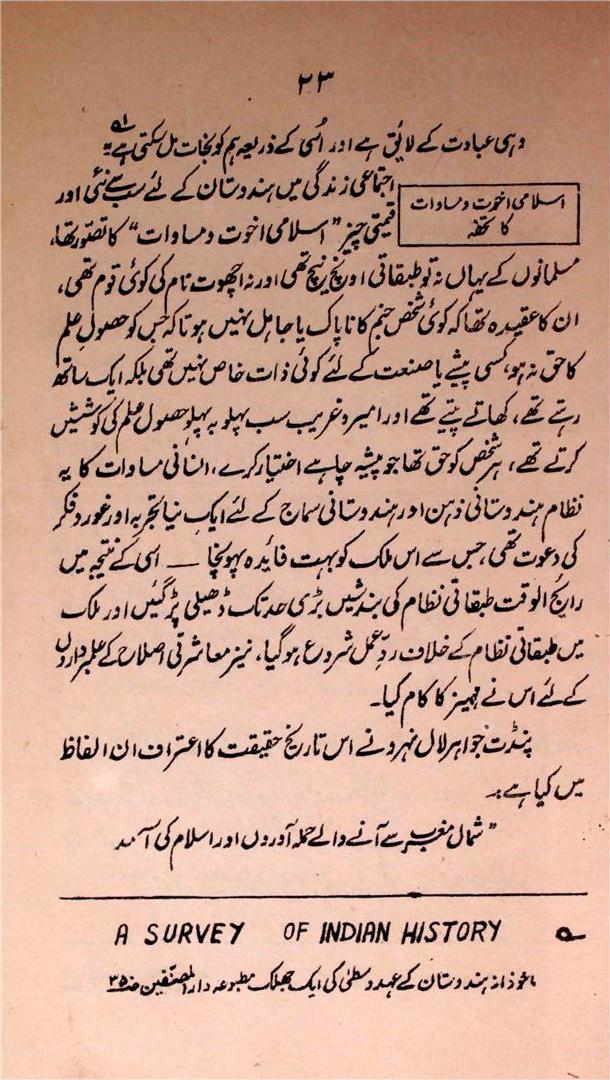 ۲۳
وہی عبادت کے لائق ہے اور اُسی کے ذریعہ ہم کو نجات مل سکتی ہے۔
اسلامی اخوت و مساوات
کا تحفہ
اجتماعی زندگی میں ہندوستان کے لئے سب سے نئی اور
قیمتی چیز "اسلامی اخوت و مساوات" کا تصور تھا،
مسلمانوں کے یہاں نہ تو طبقاتی اونچ نیچ تھی اور نہ اچھوت نام کی کوئی قوم تھی،
ان کا عقیدہ تھا کہ کوئی شخص جنم کا ناپاک یا جاہل نہیں ہوتا کہ جس کو حصولِ علم
کا حق نہ ہو، کسی پیشے یا صنعت کے لئے کوئی ذات خاص نہیں تھی بلکہ ایک ساتھ
رہتے تھے، کھاتے پیتے تھے اور امیر و غریب سب پہلو بہ پہلو حصول علم کی کوشیش
کرتے تھے، ہر شخص کو حق تھا جو پیشہ چاہے اختیار کرے، انسانی مساوات کا یہ
نظام ہندوستانی ذہن اور ہندوستانی سماج کے لئے ایک نیا تجربہ اور غور و فکر
کی دعوت تھی، جس سے اس ملک کو بہت فائدہ پہونچا — اسی کے نتیجہ میں
رائج الوقت طبقاتی نظام کی بندشیں بڑی حد تک ڈھیلی پڑ گئیں اور ملک
میں طبقاتی نظام کے خلاف ردِّ عمل شروع ہو گیا، نیز معاشرتی اصلاح کے علمبرداروں
کے لئے اس نے مہمیز کا کام کیا۔
پنڈت جواہر لال نہرو نے اس تاریخی حقیقت کا اعتراف ان الفاظ
میں کیا ہے:۔
"شمال مغرب سے آنے والے حملہ آوروں اور اسلام کی آمد
A SURVEY OF INDIAN HISTORY
ماخوذ از ہندوستان کے عہد وسطیٰ کی ایک جھلک مطبوعہ دار المصنّفین ص۳۵